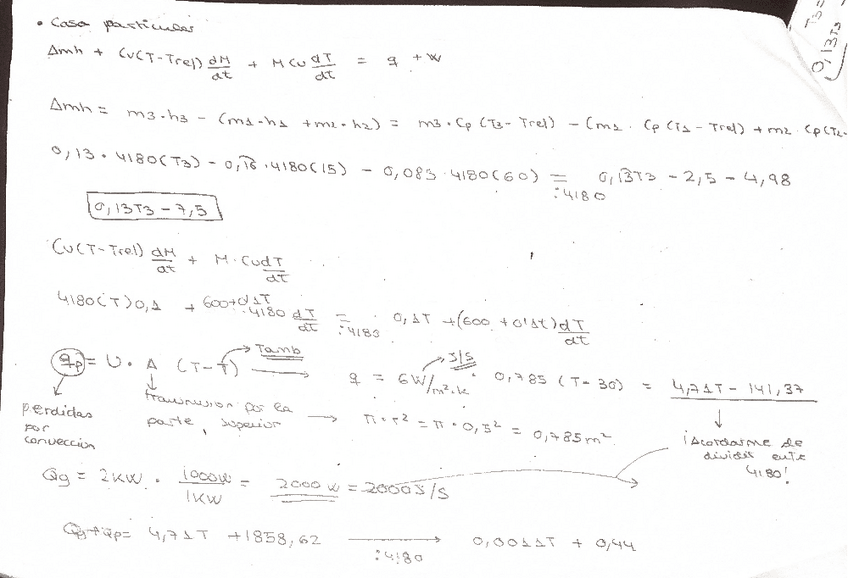 • Caso particular
Δmh + Cv(T-Tref) dM/dt + M Cv dT/dt = q + W
Δmh = m3·h3 - (m1·h1 + m2·h2) = m3·Cp (T3-Tref) - (m1·Cp(T1-Tref) + m2·Cp(T2-
0,13·4180(T3) - 0,16·4180(15) - 0,083·4180(60) = 0,13T3 - 2,5 - 4,98
:4180
0,13T3 - 7,5
Cv(T-Tref) dM/dt + M·Cv dT/dt
4180(T)0,1 + 600+0,1T·4180 dT/dt = 0,1T + (600 + 0'1t) dT/dt
:4180
qp = U·A (T-T) → Tamb → q = 6W/m²·k · 0,785 (T-30) = 4,71T - 141,37
J/S
perdidas por conveccion
transmision por la parte superior → π·r² = π·0,5² = 0,785m²
¡Acordarme de dividir entre 4180!
Qg = 2KW · 1000W/1KW = 2000W = 2000J/S
Qg+Qp = 4,71T + 1858,62 → 0,0011T + 0,44
:4180
0,13T3